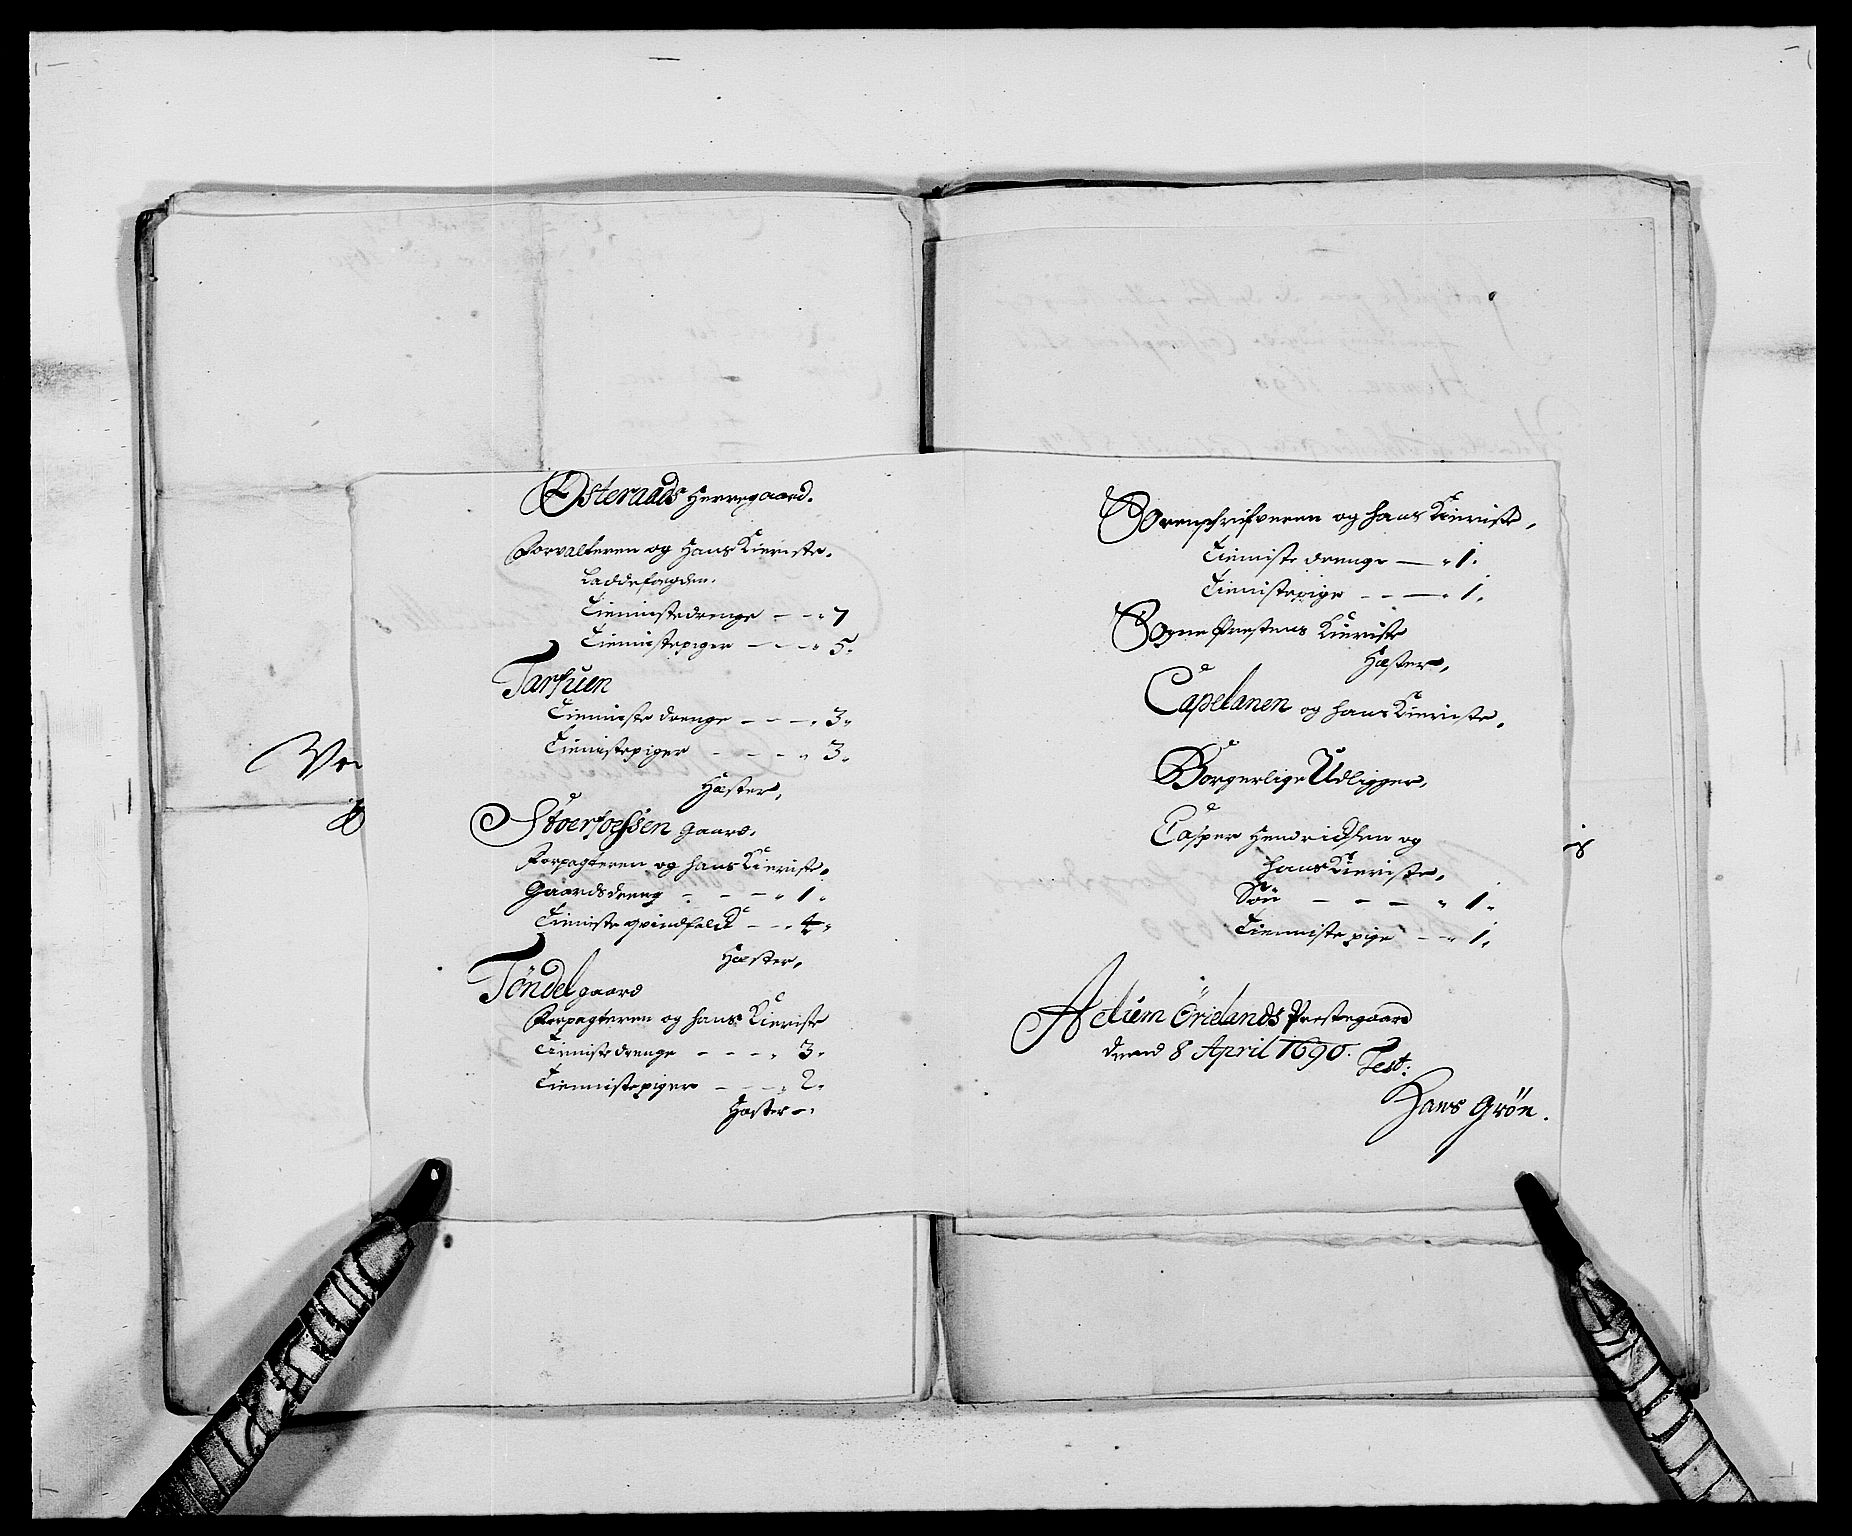 Østeraads Herregaard.
Forvalteren og Hans Kieriste.
Laddefogden.
Tienniste drenge — — 7
Tienniste piger — — 5.
Tarfuen
Tienniste drenge — — — 3.
Tienniste piger — — — 3.
Hæster,
Stoerfoessen gaard.
Forpagteren og hans Kieriste.
Gaardsdreng — — — 1.
Tienniste qvindfolck — — 4.
Hæster,
Tøndel gaard
Forpagteren og hans Kieriste
Tienniste drenge — — — 3.
Tienniste piger — — — 2.
Hæster —
Sorenschrifveren og hans Kieriste,
Tienniste drenge — 1.
Tienniste pige — — — 1.
Sogne Prestens Kieriste
Hæster,
Capelanen og hans Kieriste,
Borgerlige Udligger,
Casper Hendrichsen og
hans Kieriste,
Søn — — — 1.
Tienniste pige — — 1.
Actum Ørelands Prestegaard
dend 8 April 1690. Test:
Hans Grøn.